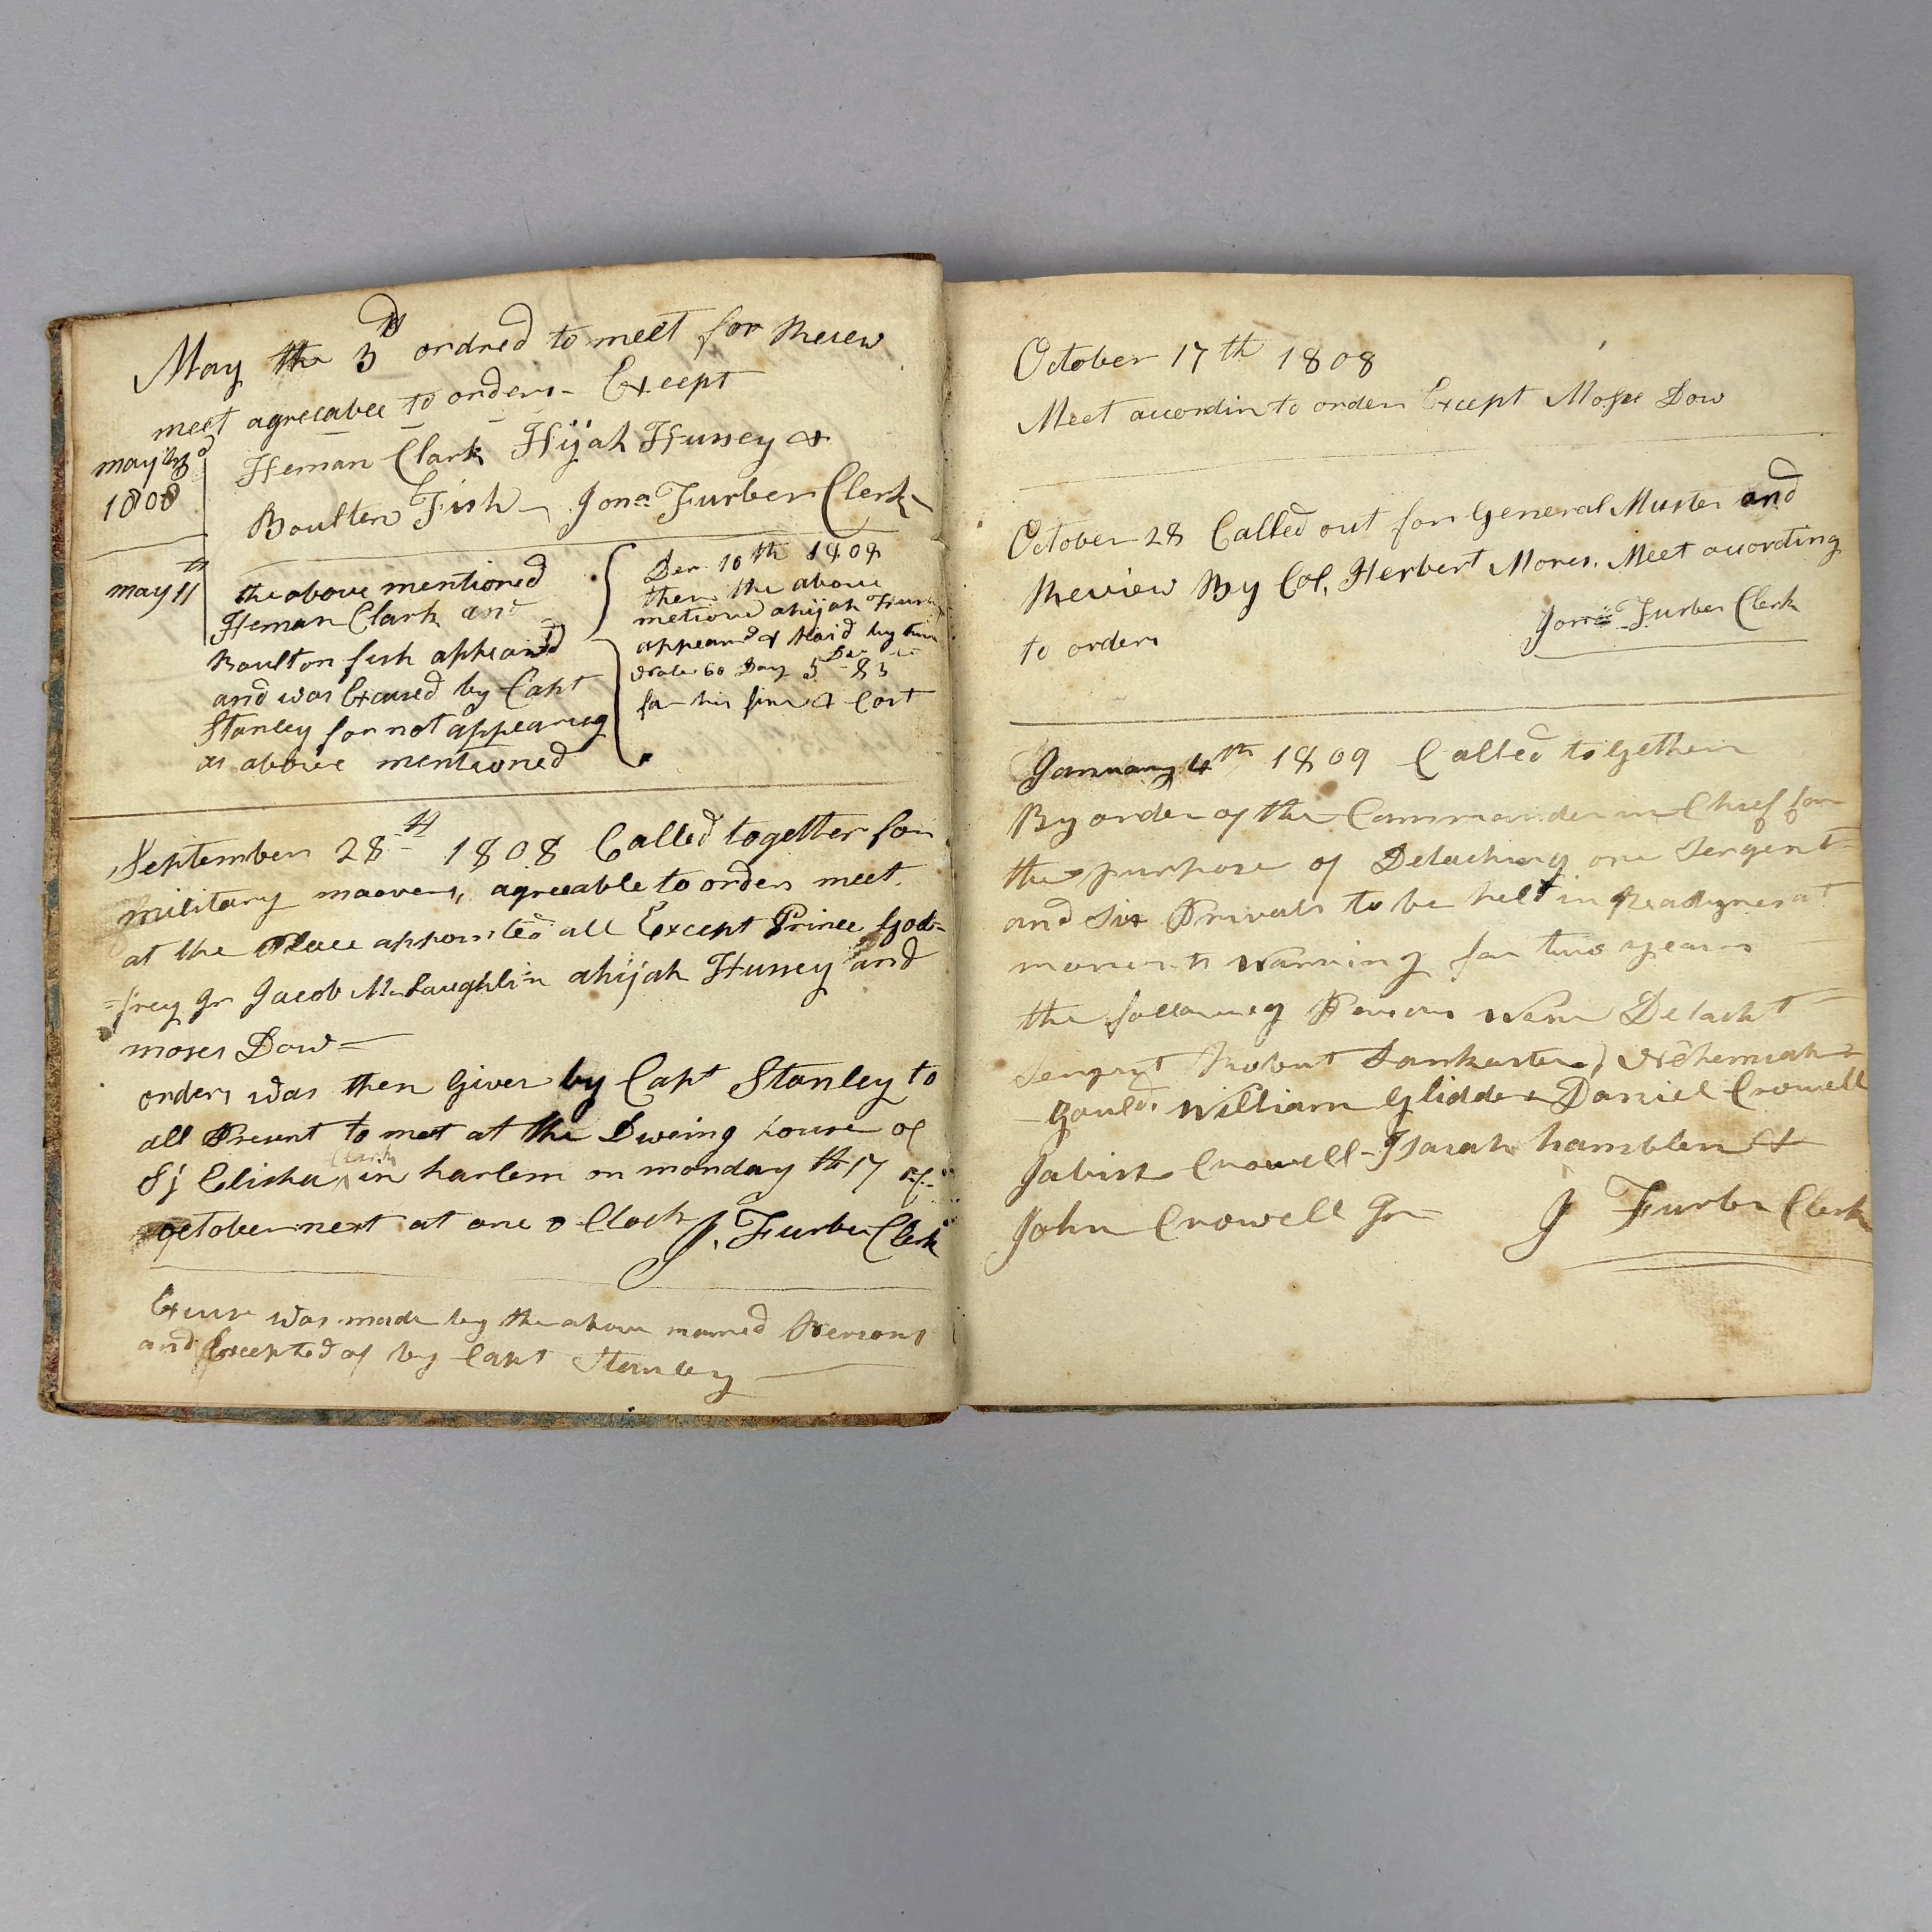 May the 3d ordred to meet for Reiew
meet agreeabee to orders - Except
may 3d
1808
Heman Clark Hijah Hussey &
Boulten Fish - Jona Furber Clerk
may 11th
the above mentioned
Heman Clark and
Boulton fish appeared
and was Excused by Capt
Stanley for not appearing
as above mentioned
Der 10th 1808
then the above
metiond ahijah
appeard & Paid by his
Note 60 Day 5 - 83
for his fine & Cost
September 28th 1808 Called together for
military maovers, agreeable to orders meet
at the Place appointed all Except Prince God=
=frey Jr Jacob McLaughlin ahijah Hussey and
moses Dow -
orders was then Given by Capt Stanley to
all Present to meet at the Dweing house of
Sj Elisha Clark in harlem on monday th 17 of
october next at one o Clock J. Furber Clerk
Excuse was made by the above named Persons
and Excepted of by Capt Stanley
October 17th 1808
Meet accordin to orders Except Moses Dow
October 28 Called out for General Muster and
Review By Col, Herbert Mores. Meet according
to orders
Jona Furber Clerk
January 4th 1809 Called to Gether
By order of the Commander in Chief for
the purpose of Detaching one Sergent
and Six Privats to be held in Readyness at
moments Warning for two years
the following Persons Were Detacht
Sergent Robert Lankaster, Nehemiah
Gould, William Glidden Daniel Crowell
Jabish Crowell - Isaiah hamblen &
John Crowell Jr - J Furber Clerk